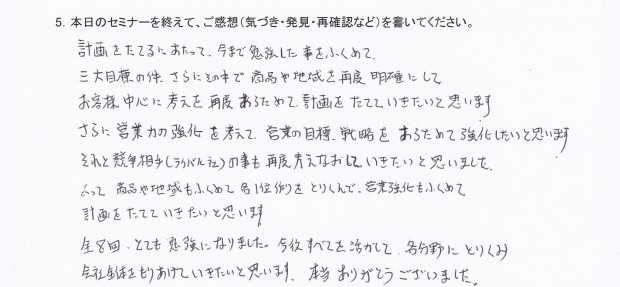 5. 本日のセミナーを終えて、ご感想(気づき・発見・再確認など)を書いてください。
計画をたてるにあたって、今まで勉強した事をふくめて、
三大目標の件、さらにその中で商品や地域を再度明確にして
お客様中心に考えを再度あらためて計画をたてていきたいと思います
さらに営業力の強化を考えて、営業の目標、戦略をあらためて強化したいと思います
それと競争相手(ライバル社)の事も再度考えなおしていきたいと思いました。
よって商品や地域もふくめて各1位作りをとりくんで、営業強化もふくめて
計画をたてていきたいと思います
全8回、とても勉強になりました。今後すべてを活かして、各分野にとりくみ
会社全体をもりあげていきたいと思います。本当ありがとうございました。